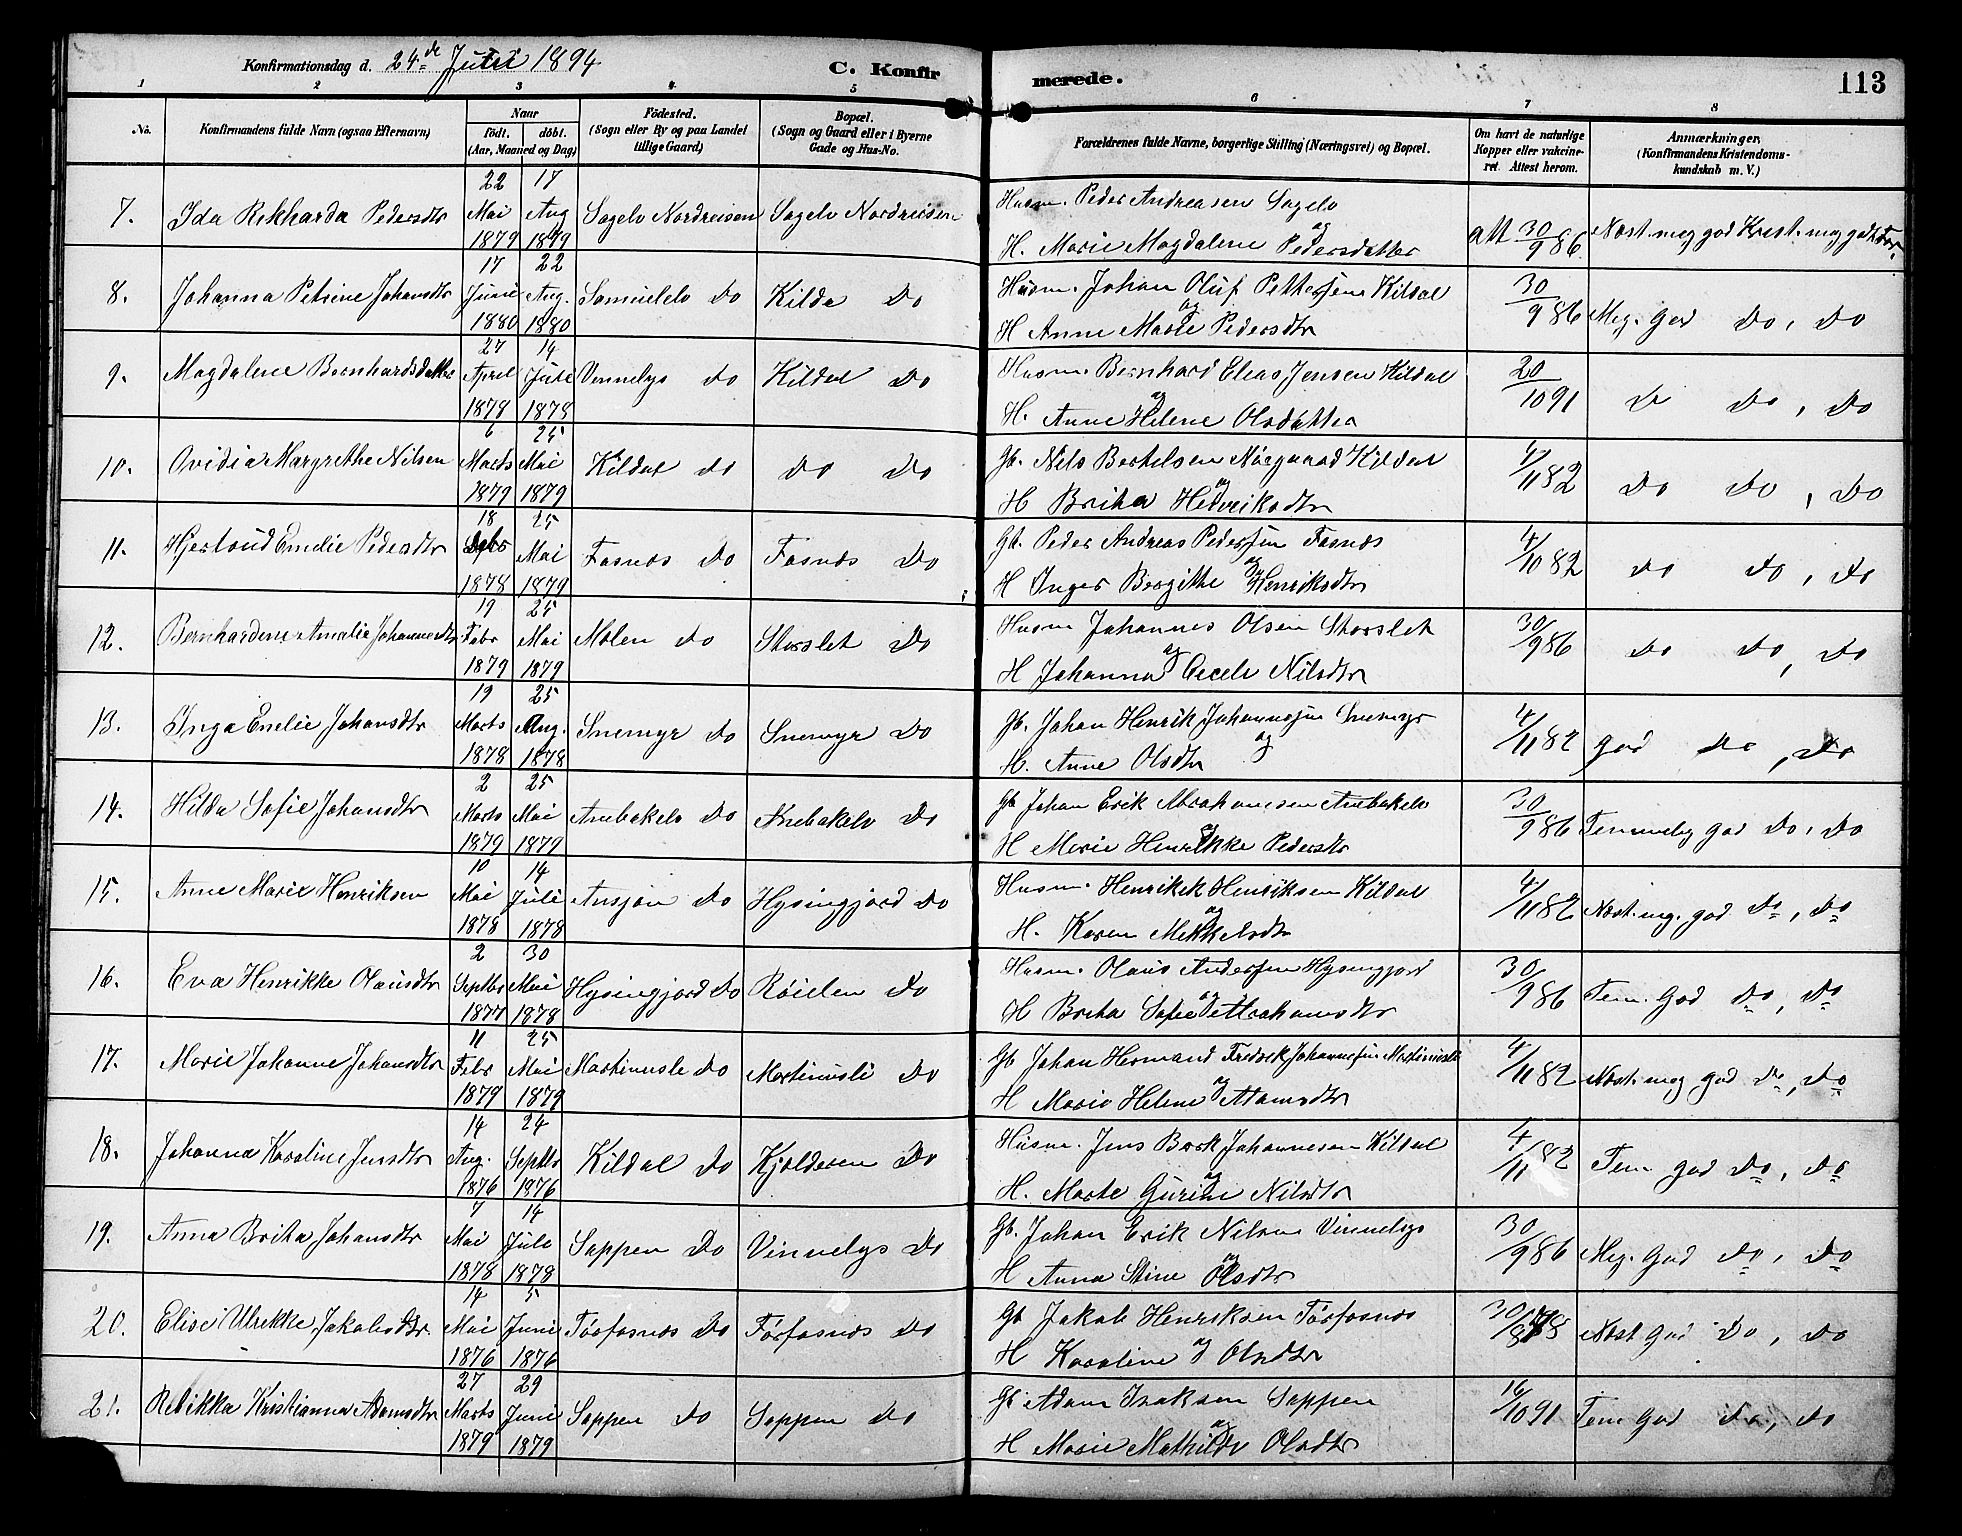 Konfirmationsdag d. 24de Juni 1894
C. Konfirmerede.
113
1 2 3 4 5 6 7 8
No.
Konfirmandens fulde Navn (ogsaa Efternavn)
Naar
födt. döbt.
(Aar, Maaned og Dag)
Födested.
(Sogn eller By og paa Landet
tillige Gaard)
Bopæl.
(Sogn og Gaard eller i Byerne
Gade og Hus-No.
Forældrenes fulde Navne, borgerlige Stilling (Næringsvei) og Bopæl.
Om havt de naturlige
Kopper eller vakcine-
ret. Attest herom.
Anmærkninger,
(Konfirmandens Kristendoms-
kundskab m. V.)
7. Ida Rikharda Pedersdtr 22 Mai 1879 17 Aug 1879 Sagelv Nordreisen Sagelv Nordreisen
Husm. Peder Andreasen Sagelv
og
H. Marie Magdalene Pedersdatter
att 30/9 86 Næst. meg god Krist. meg god
8. Johanna Petrine Johansdtr 17 Juni 1880 22 Aug. 1880 Samuelelv Do Kildal Do
Husm. Johan Oluf Pettersen Kildal
og
H Anne Marie Pedersdtr
30/9 86 Meg. god Do, Do
9. Magdalene Bernhardsdatter 27 April 1878 14 Juli 1878 Vinnelys Do Kildal Do
Husm. Bernhard Elias Jensen Kildal
og
H. Anne Helene Olsdatter
20/10 91 Do Do, Do
10. Ovidia Margrethe Nilsen 6 Marts 1879 25 Mai 1879 Kildal Do Do Do
Gb. Nils Bertelsen Nörgaard Kildal
og
H Brita Henriksdtr
4/11 82 Do Do, Do
11. Hjertrud Emelie Pedersdtr 18 1878 25 Mai 1879 Fosnæs Do Fosnæs Do
Gb. Peder Andreas Pedersen Fosnæs
og
H Inger Bergithe Henriksdtr
4/10 82 Do Do, Do
12. Bernhardene Amalie Johannesdtr 19 Febr 1879 25 Mai 1879 Molen Do Storslet Do
Husm Johannes Olsen Storslet
og
H Johanna Cecele Nilsdtr
30/9 86 Do Do, Do
13. Inga Emelie Johansdtr 19 Marts 1878 25 Aug. 1878 Snemyr Do Snemyr Do
Gb. Johan Henrik Johannesen Snemyr
og
H. Anne Olsdtr
4/11 82 god Do, Do
14. Hilda Sofie Johansdtr 2 Marts 1879 25 Mai 1879 Anebakelv Do Anebakelv Do
Gb Johan Erik Abrahamsen Anebakelv
og
H Marie Henrikke Pedersdtr
30/9 86 Temmelig god Do, Do
15. Anne Marie Henriksen 10 Mai 1878 14 Juli 1878 Ansjön Do Hysingjord Do
Husm. Henrik Henriksen Kildal
og
H. Karen Mikkelsdtr
4/11 82 Næst. meg. god Do, Do
16. Eva Henrikke Olausdtr 2 Septbr 1877 30 Mai 1878 Hysingjord Do Röielen Do
Husm. Olaus Andersen Hysingjord
og
H Brita Sofie Abrahamsdtr
30/9 86 Tem. god Do, Do
17. Marie Johanne Johansdtr 11 Febr 1879 25 Mai 1879 Martinusli Do Martinusli Do
Gb Johan Hermand Fredrik Johannesen Martinusli
og
H Marie Helene Adamsdtr
4/11 82 Næst. meg god Do, Do
18. Johanna Karoline Jensdtr 14 Aug. 1876 24 Septbr 1876 Kildal Do Kjelderen Do
Husm. Jens Berk Johannesen Kildal
og
H. Marte Gurine Nilsdtr
4/11 82 Tem god Do, Do
19. Anna Brita Johansdtr 7 Mai 1878 14 Juli 1878 Sappen Do Vinnelys Do
Gb. Johan Erik Nilsen Vinnelys
og
H Anna Stine Olsdtr
30/9 86 Meg. god Do, Do
20. Elise Ulrikke Jakobsdtr. 14 Mai 1876 5 Juni 1876 Förfosnæs Do Förfosnæs Do
Gb Jakob Henriksen Förfosnæs
og
H Karoline Olsdtr
Næst god Do, Do
21. Rebikka Kristianna Adamsdtr 27 Marts 1879 29 Juni 1879 Sappen Do Sappen Do
Gb Adam Isaksen Sappen
og
H Marie Mathilde Olsdtr
16/10 91 Tem god Do, Do